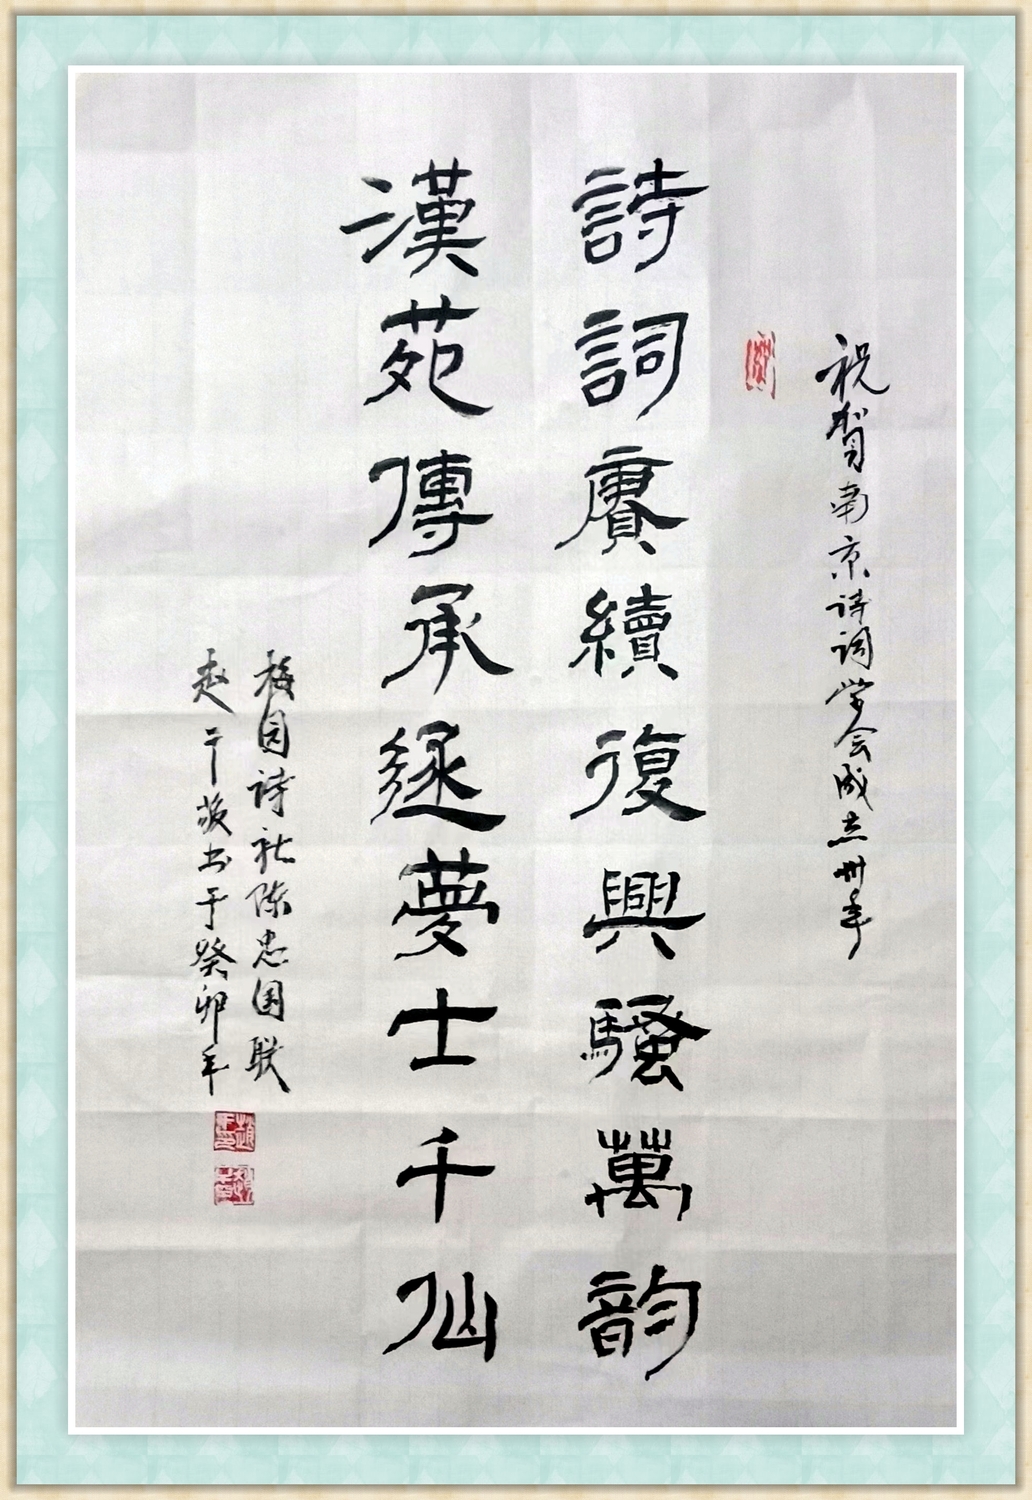 祝贺南京诗词学会成立卅年
詩詞賡續復興騷萬韵
漢苑傳承逐夢士千仙
梅园詩社陈忠国联
赵于茨书于癸卯年